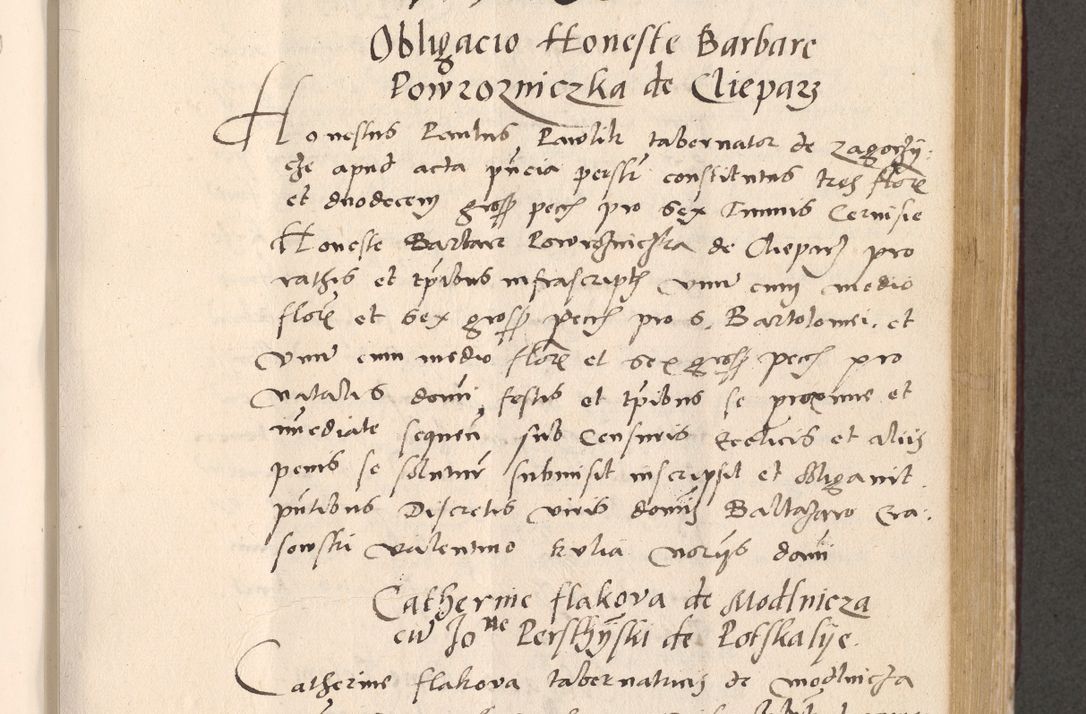 Obligacio Honeste Barbare
Powrozniczka de Clieparz
Honestus Paulus Pawlik tabernator de Zagorzy-
cze apud acta pñcia perslr constitutus tres floꝛ
et duodecem gross pecz pro sex Tunnis Cervisie
Honeste Barbare Powrozniczka de Clieparz pro
rathis et tp̃ibus infrascriptis Vnũ cum medio
floꝛ et sex gross pecz pro S. Bartolomei, et
Vnũ cum medio floꝛ et sex gross pecz pro
Natalis domi, festis et tp̃ibus se proxime et
im̃ediate sequeñ sub Censuris Ecclicis et aliis
penis se soluturũ submisit inscripsit et obligavit
pñtibus Discretis viris dominis Baltazaro Cra-
sowski Valentino Kulia Noriis domi
Catherine flakova de Modlnicza
cũ Jo^ne Perszynski de Potskalije.
Catherine flakova tabernatricis de modlnicza